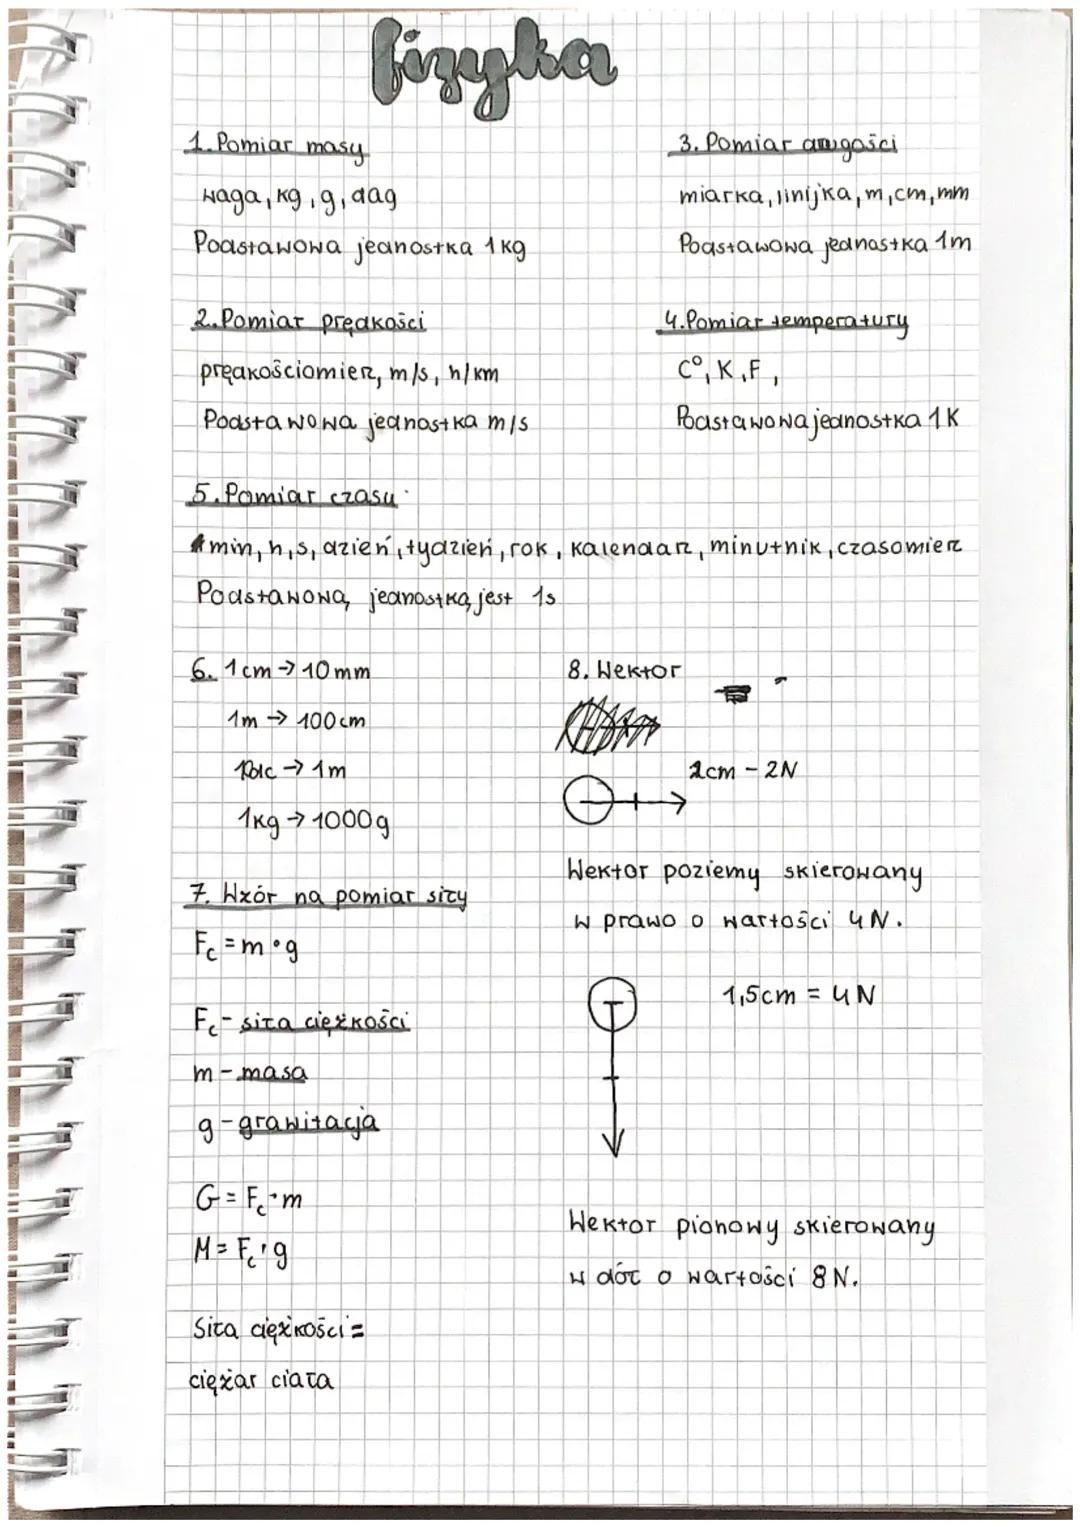 fizyka
1. Pomiar masy
waga, kg, g, dag
Podstawowa jednostka 1kg
2. Pomiar prędkości
prędkościomierz, m/s, h/km
Podstawowa jednostka m/s
3. Pomiar długości
miarka, linijka, m, cm, mm
Podstawowa jednostka 1m
4. Pomiar temperatury
C°, K, F,
Podstawowa jednostka 1K
5. Pomiar czasu
min, h, s, dzień, tydzień, rok, kalendarz, minutnik, czasomierz
Podstawową jednostką jest 1s
6. 1cm → 10mm
1m → 100cm
→ 1m
1kg → 1000g
7. Wzór na pomiar siły
Fc = m · g
Fc - siła ciężkości
m - masa
g - grawitacja
G = Fc · m
M = Fc : g
Siła ciężkości =
ciężar ciała
8. Wektor
2cm - 2N
Wektor poziemy skierowany
w prawo o wartości 4N.
1,5cm = 4N
Wektor pionowy skierowany
w dół o wartości 8N.